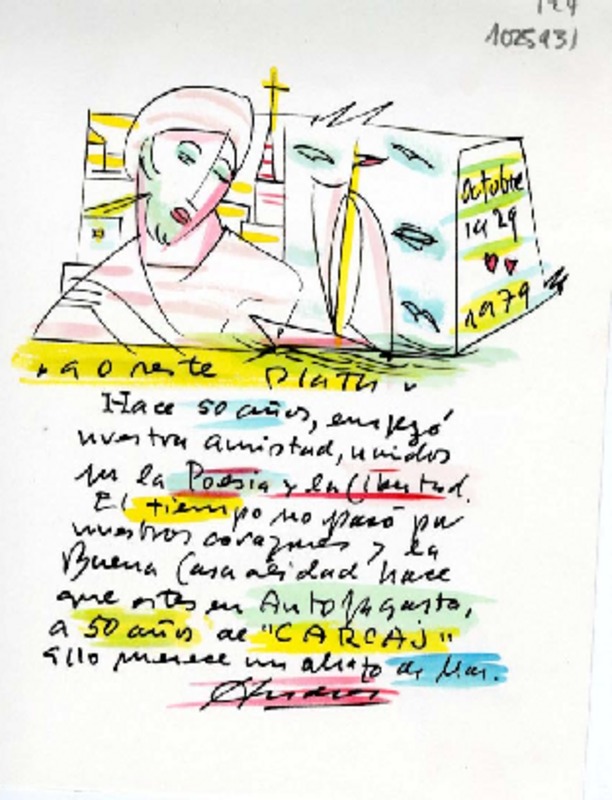 1025931
Octubre
1929
1979
"a Oreste Plath"
Hace 50 años, empezó
nuestra amistad, unidos
por la Poesia y la Libertad.
El tiempo no pasó por
nuestros corazones y la
Buena Casualidad hace
que estes en Antofagasta,
a 50 años de "CARCAJ"
ello merece un abrazo de Mar.
Andres